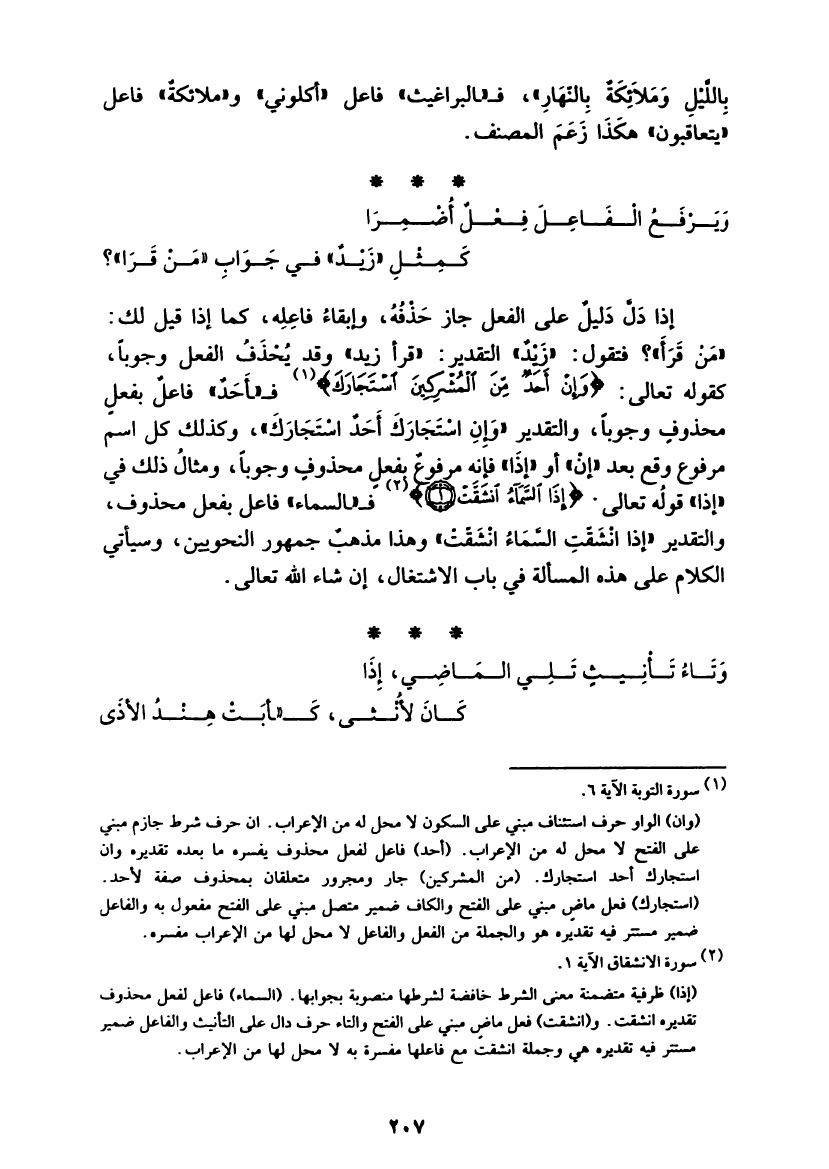 بِاللَّيْلِ وَمَلاَئِكَةٌ بِالنَّهَارِ»، فـ«البراغيث» فاعل «أكلوني» و«ملائكةٌ» فاعل
«يتعاقبون» هكَذَا زَعَمَ المصنف.
* * *
وَيَـرْفَـعُ الْـفَـاعِـلَ فِـعْـلٌ أُضْـمِـرَا
كَـمِـثْـلِ «زَيْـدٌ» فـي جَـوَابِ «مَـنْ قَـرَا»؟
إذا دَلَّ دَليلٌ على الفعل جاز حَذْفُهُ، وإبقاءُ فاعِلِه، كما إذا قيل لك:
«مَنْ قَرَأَ»؟ فتقول: «زَيْدٌ» التقدير: «قرأ زيد» وقد يُحْذَفُ الفعل وجوباً،
كقوله تعالى: ﴿وَإِنْ أَحَدٌ مِّنَ ٱلْمُشْرِكِينَ ٱسْتَجَارَكَ﴾(١) فـ«أَحَدٌ» فاعلٌ بفعلٍ
محذوفٍ وجوباً، والتقدير «وَإِنِ اسْتَجَارَكَ أَحَدٌ اسْتَجَارَكَ»، وكذلك كل اسم
مرفوع وقع بعد «إنْ» أو «إذَا» فإنه مرفوعٌ بفعلٍ محذوفٍ وجوباً، ومثالُ ذلك في
«إذا» قولُه تعالى. ﴿إِذَا ٱلسَّمَآءُ ٱنشَقَّتْ ۝١﴾(٢) فـ«السماء» فاعل بفعل محذوف،
والتقدير «إذا انْشَقَّتِ السَّمَاءُ انْشَقَّتْ» وهذا مذهبُ جمهور النحويين، وسيأتي
الكلام على هذه المسألة في باب الاشتغال، إن شاء الله تعالى.
* * *
وَتَـاءُ تَـأْنِـيـثٍ تَـلِـي الـمَـاضِـي، إِذَا
كَـانَ لأُنْـثـى، كَـ«أَبَـتْ هِـنْـدُ الأذَى
(١) سورة التوبة الآية ٦.
(وان) الواو حرف استئناف مبني على السكون لا محل له من الإعراب. ان حرف شرط جازم مبني
على الفتح لا محل له من الإعراب. (أحد) فاعل لفعل محذوف يفسره ما بعده تقديره وان
استجارك أحد استجارك. (من المشركين) جار ومجرور متعلقان بمحذوف صفة لأحد.
(استجارك) فعل ماضٍ مبني على الفتح والكاف ضمير متصل مبني على الفتح مفعول به والفاعل
ضمير مستتر فيه تقديره هو والجملة من الفعل والفاعل لا محل لها من الإعراب مفسره.
(٢) سورة الانشقاق الآية ١.
(إذا) ظرفية متضمنة معنى الشرط خافضة لشرطها منصوبة بجوابها. (السماء) فاعل لفعل محذوف
تقديره انشقت. و(انشقت) فعل ماضٍ مبني على الفتح والتاء حرف دال على التأنيث والفاعل ضمير
مستتر فيه تقديره هي وجملة انشقت مع فاعلها مفسرة به لا محل لها من الإعراب.
٢٠٧